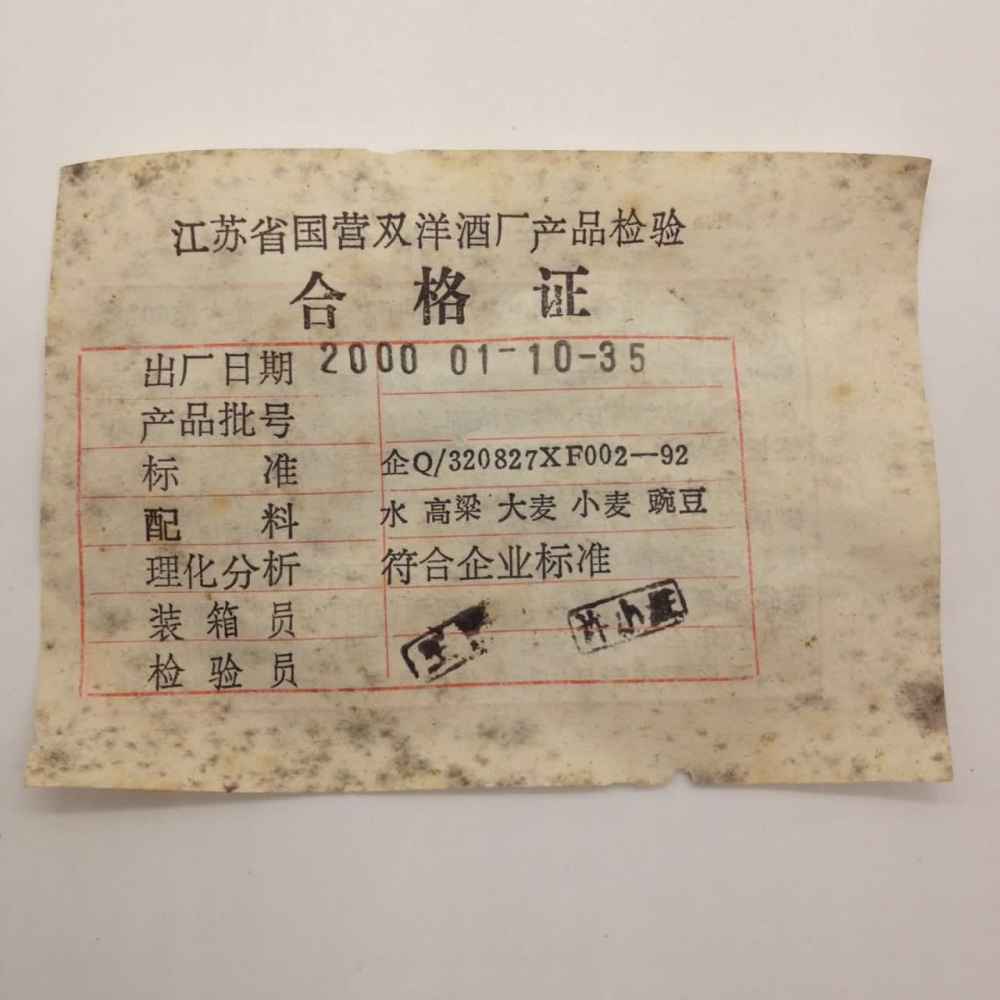 江苏省国营双洋酒厂产品检验
合格证
出厂日期 2000 01-10-35
产品批号
标准 企Q/320827XF002—92
配料 水 高梁 大麦 小麦 豌豆
理化分析 符合企业标准
装箱员
检验员